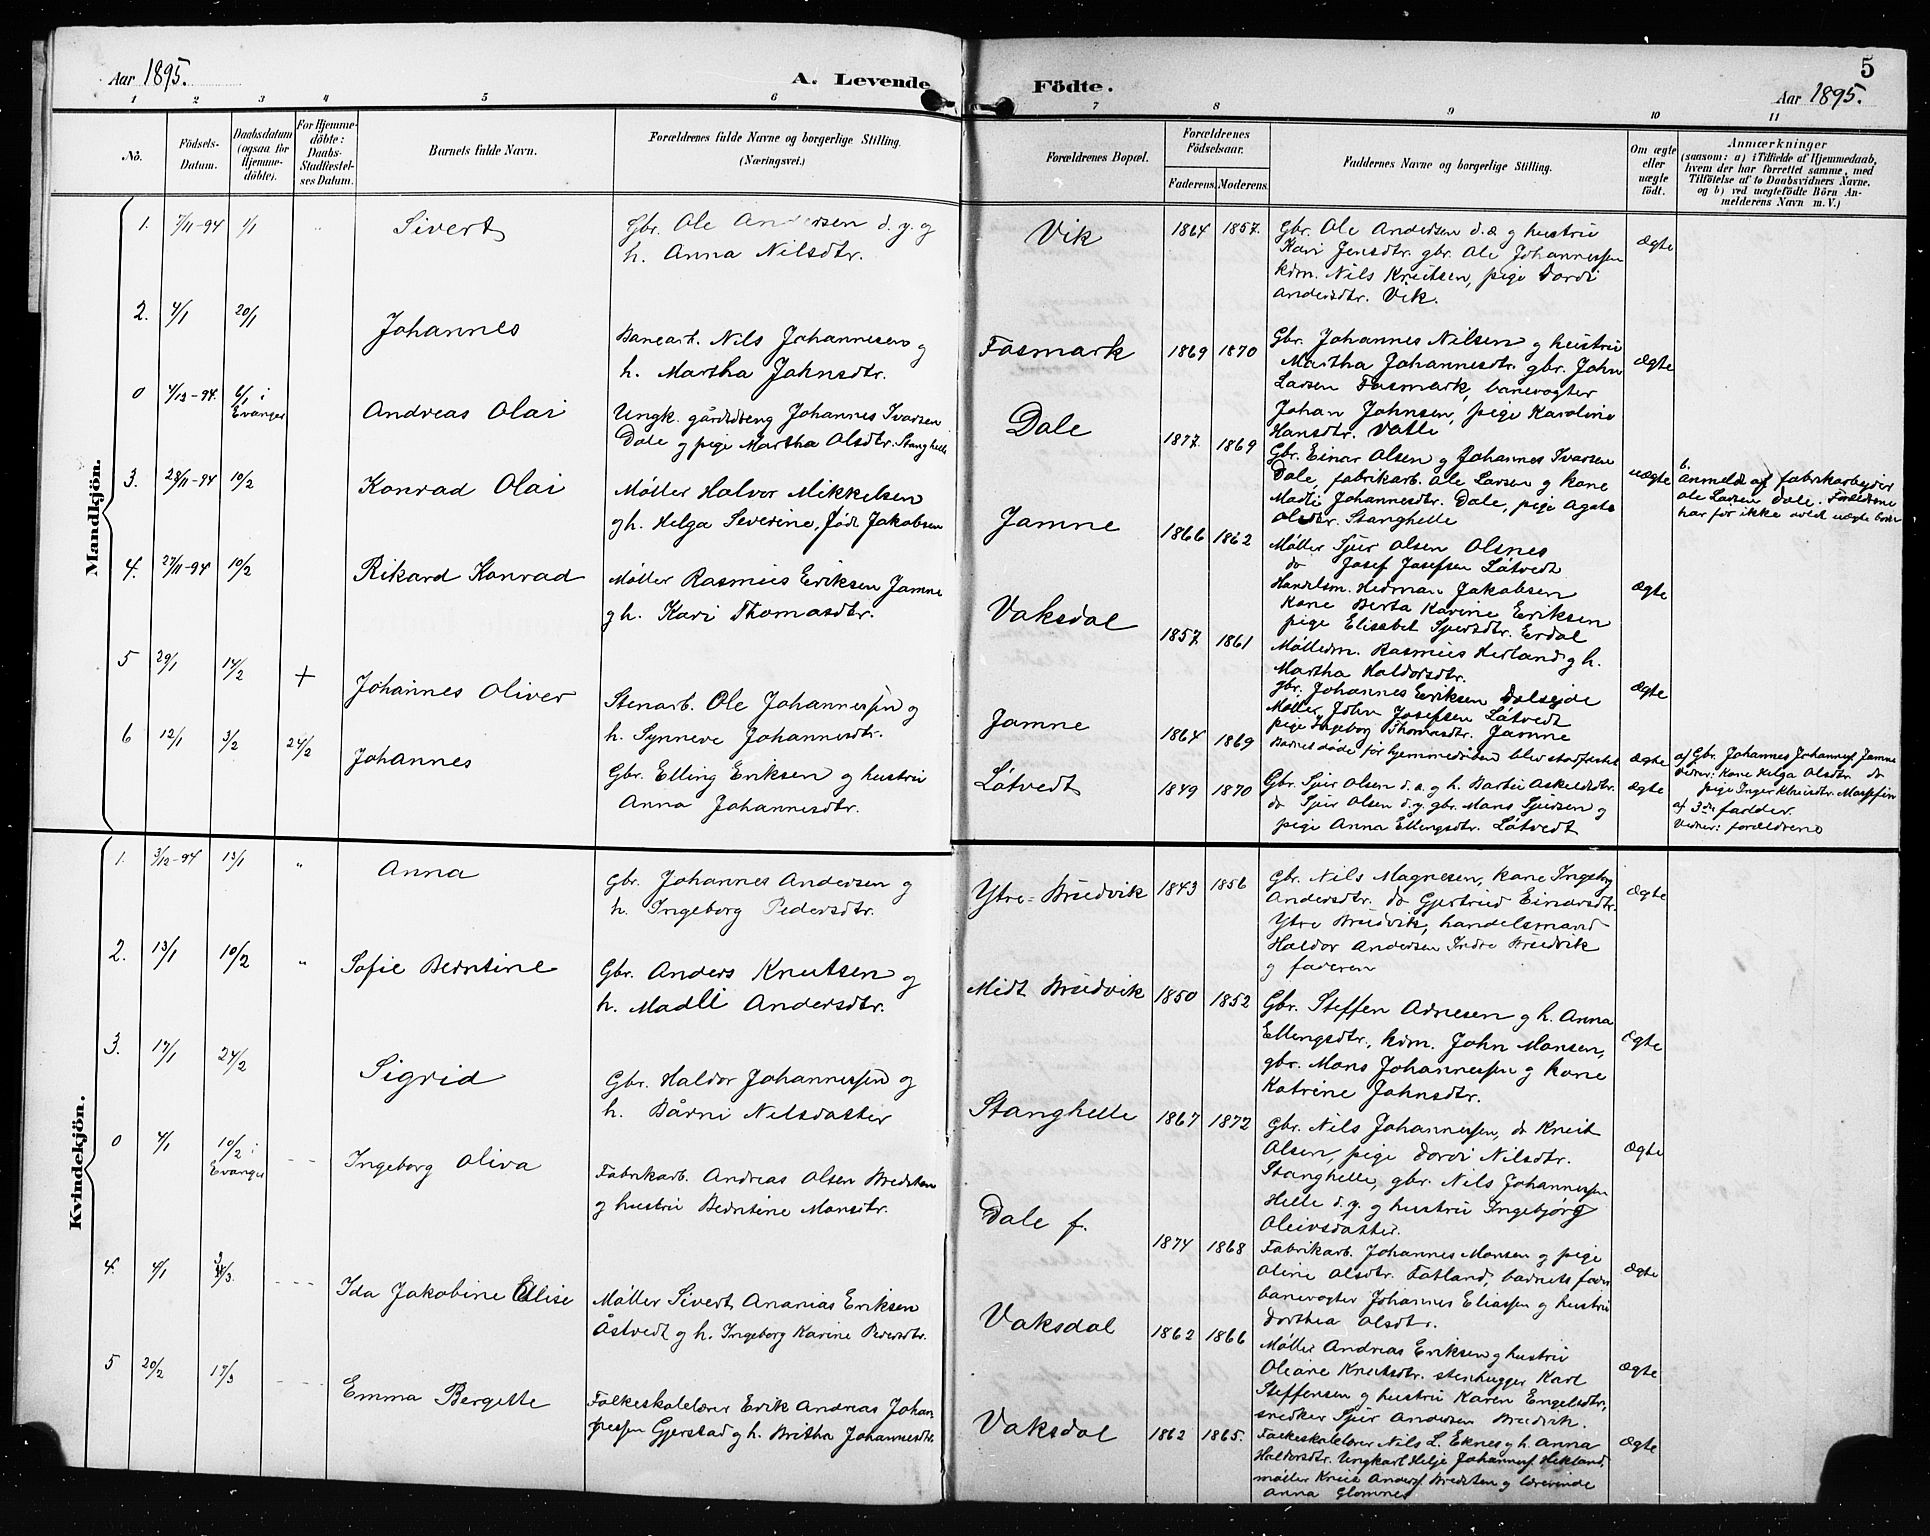 Aar 1895.
A. Levende
Födte.
5
Aar 1895.
1 2 3 4 5 6 7 8 9 10 11
No.
Födsels-Datum.
Daabsdatum (ogsaa for Hjemme-döbte).
For Hjemme-döbte: Daabs-Stadfæstel-ses Datum.
Barnets fulde Navn.
Forældrenes fulde Navne og borgerlige Stilling.
(Næringsvei.)
Forældrenes Bopæl.
Forældrenes Födselsaar.
Faderens. Moderens.
Faddernes Navne og borgerlige Stilling.
Om ægte eller uægte födt.
Anmærkninger
(saasom: a) i Tilfælde af Hjemmedaab,
hvem der har forrettet samme, med
Tilföielse af to Daabsvidners Navne.
og b) ved uegtefödte Börn An-
melderens Navn m. V.)
Mandkjön.
1. 7/11-94 1/1 Sivert
Gbr. Ole Andersen d. y. g
h. Anna Nilsdtr.
Vik 1864 1857.
Gbr. Ole Andersen d. æ g hustru
Kari Jensdtr. gbr. Ole Johannessen
kdm. Nils Knutsen, pige Dordi
Andersdtr. Vik.
Ægte
2. 4/1 20/1 Johannes
Banearb. Nils Johannesen g
h. Martha Johnsdtr.
Fosmark 1869 1870
Gbr. Johannes Nilsen g hustru
Martha Johannesdtr gbr. John
Larsen Fosmark, banevogter
Johan Johnsen, pige Karoline
Hansdtr. Vatle
Ægte
0 4/12-94. 6/1 i Evanger Andreas Olai
Ungk. gårddreng Johannes Ivarsen
Dale g pige Martha Olsdtr. Stanghelle
Dale 1877. 1869
Gbr. Einar Olsen g Johannes Ivarsen
Dale, fabrikarb. Ole Larsen g kone
Madli Johannesdtr. Dale, pige Agate
Olsdtr. Stanghelle
uægte
b.
anmeldt af fabrikarbeider
Ole Larsen Dale. Forældrene
har før ikke avlet uægte børn
3. 28/11-94 10/2 Konrad Olai
Møller Halvor Mikkelsen
g h. Helga Severine, født Jakobsen
Jamne 1866 1862
Møller Sjur Olsen Olsnes
do Josef Josefsen Låtvedt
Handelsm. Herman Jakobsen
kone Berta Karine Eriksen
pige Elisabet Sjursdtr. Erdal
Ægte
4. 27/11-94 10/2 Rikard Konrad
Møller Rasmus Eriksen Jamne
g h. Kari Thomasdtr.
Vaksdal 1857 1861
Møllerm. Rasmus Herland g h.
Martha Haldorsdtr.
gbr. Johannes Eriksen Dalseide
Møller John Josefsen Låtvedt
pige Ingeborg Thomasdtr. Jamne
Ægte
5 29/1 14/2 + Johannes Oliver
Stenarb. Ole Johannessen g
h. Synneve Johannesdtr.
Jamne 1864 1869
Barnet døde før hjemmedåben blev stadfæstet
Ægte
a) Gbr. Johannes Johannes. Jamne
Vidner: Kone Helga Olsdtr. do
pige Inger Knutsdtr.
6 12/1 3/2 24/2 Johannes
Gbr. Elling Eriksen g hustru
Anna Johannesdtr.
Låtvedt 1849 1870
Gbr. Sjur Olsen d. æ. g h. Barbu Askeldsdtr.
do Sjur Olsen d. y. gbr. Mons Sjursen g
pige Anna Ellingsdtr. Låtvedt
Ægte
af 3die fadder.
Vidner: forældrene
Kvindekjön.
1. 3/12-94 13/1 " Anna
Gbr. Johannes Andersen g
h. Ingeborg Pedersdtr.
Ytre-Bruvik 1843 1856
Gbr. Nils Magnesen, kone Ingeborg
Andersdtr. do Gjertrud Einarsdtr.
Ytre Bruvik, handelsmand
Haldor Andersen Indre Bruvik
g faderen
Ægte
2. 13/1 10/2 " Sofie Berntine
Gbr. Anders Knutsen g
h. Madli Andersdtr.
Midt Bruvik 1850 1852
Gbr. Steffen Adnesen g h. Anna
Ellingsdtr., kdm. John Monsen,
gbr. Mons Johannessen g kone
Katrine Johnsdtr.
Ægte
3. 17/1 24/2 Sigrid
Gbr. Haldor Johannessen g
h. Bårni Nilsdatter
Stanghelle 1867 1872
Gbr. Nils Johannessen, do Knut
Olsen, pige Dordi Nilsdtr.
Stanghelle, gbr. Nils Johannessen
Helle d. y. g hustru Ingebjørg
Oleivsdatter.
Ægte
0 4/1 10/2 i Evanger Ingeborg Oliva
Fabrikarb. Andreas Olsen Bredsten
g hustru Berntine Monsdtr.
Dale f. 1874 1868
Fabrikarb. Johannes Monsen g pige
Oline Olsdtr. Fatland, barnets fader
banevogter Johannes Eliassen g hustru
Dorthea Olsdtr.
Ægte
4. 4/1 3/3. Ida Jakobine Elise
Møller Sivert Ananias Eriksen
Åstvedt g h. Ingeborg Karine Pedersdtr.
Vaksdal 1862 1866
Møller Andreas Eriksen g hustru
Oleane Knutsdtr. stenhugger Karl
Steffensen g hustru Karen Engelsdtr,
snedker Sjur Andersen Bruvik.
Ægte
5 20/2 17/3 Emma Bergette
Folkeskolelærer Erik Andreas Johan-
nessen Gjerstad g h. Britha Johannesdtr.
Vaksdal 1862 1865.
Folkeskolelærer Nils L. Eknes g h. Anna
Haldorsdtr. Ungkarl Helje Johannes. Hekland,
møller Knut Anders. Bredsten g lærerinde
Anna Glomnes
Ægte